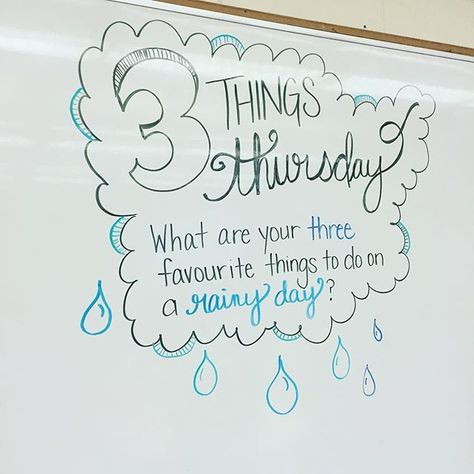 3 THINGS
thursday
What are your three
favourite things to do on
a rainy day?